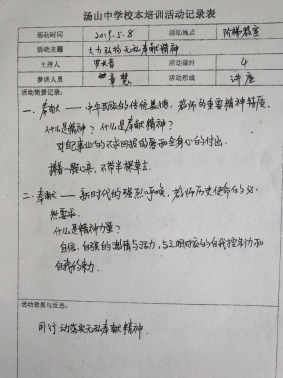 汤山中学校本培训活动记录表
活动时间 2019.5.8 活动地点 阶梯教室
活动主题 大力弘扬无私奉献精神
主持人 活动课时 4
参训人员 活动形式 讲座
活动简要记录：
一、奉献——中华民族的传统美德，教师的重要精神特质。
什么是精神？什么是奉献精神？
对自己事业的不求回报的爱和全身心的付出。
捧着一颗心来，不带半根草去。
二、奉献——新时代的强烈呼唤，教师历史使命的必
然要求。
什么是精神力量？
自信、自强的激情与活力，与之相对应的自我控制力和
自我约束力
活动效果与反思：
用行动落实无私奉献精神。